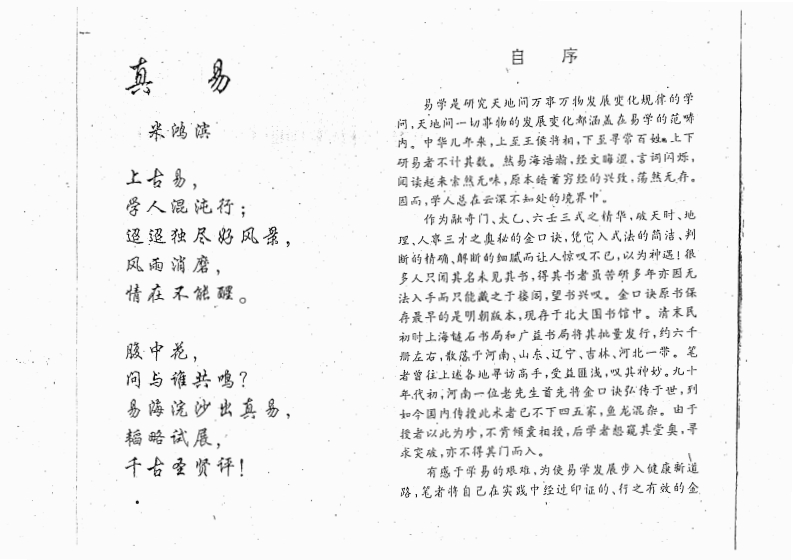 真 易
米鸿滨
上古易，
学人混沌行；
迢迢独尽好风景，
风雨消磨，
情在不能醒。
腹中花，
问与谁共鸣？
易海浣沙出真易，
韬略试展，
千古圣贤评！
自 序
易学是研究天地间万事万物发展变化规律的学
问，天地间一切事物的发展变化都涵盖在易学的范畴
内。中华几年来，上至王侯将相，下至寻常百姓，上下
研易者不计其数。然易海浩瀚，经文晦涩，言词闪烁，
阅读起来索然无味，原本皓首穷经的兴致，荡然无存。
因而，学人总在云深不知处的境界中。
作为融奇门、太乙、六壬三式之精华，破天时、地
理、人事三才之奥秘的金口诀，凭它入式法的简洁、判
断的精确、解断的细腻而让人惊叹不已，以为神遇！很
多人只闻其名未见其书，得其书者虽苦研多年亦因无
法入手而只能藏之于楼阁，望书兴叹。金口诀原书保
存最早的是明朝版本，现存于北大图书馆中。清末民
初时上海鐩石书局和广益书局将其批量发行，约六千
册左右，散落于河南、山东、辽宁、吉林、河北一带。笔
者曾往上述各地寻访高手，受益匪浅，叹其神妙。九十
年代初，河南一位老先生首先将金口诀弘传于世，到
如今国内传授此术者已不下四五家，鱼龙混杂。由于
授者以此为珍，不肯倾囊相授，后学者想窥其堂奥，寻
求突破，亦不得其门而入。
有感于学易的艰难，为使易学发展步入健康新道
路，笔者将自己在实践中经过印证的、行之有效的金